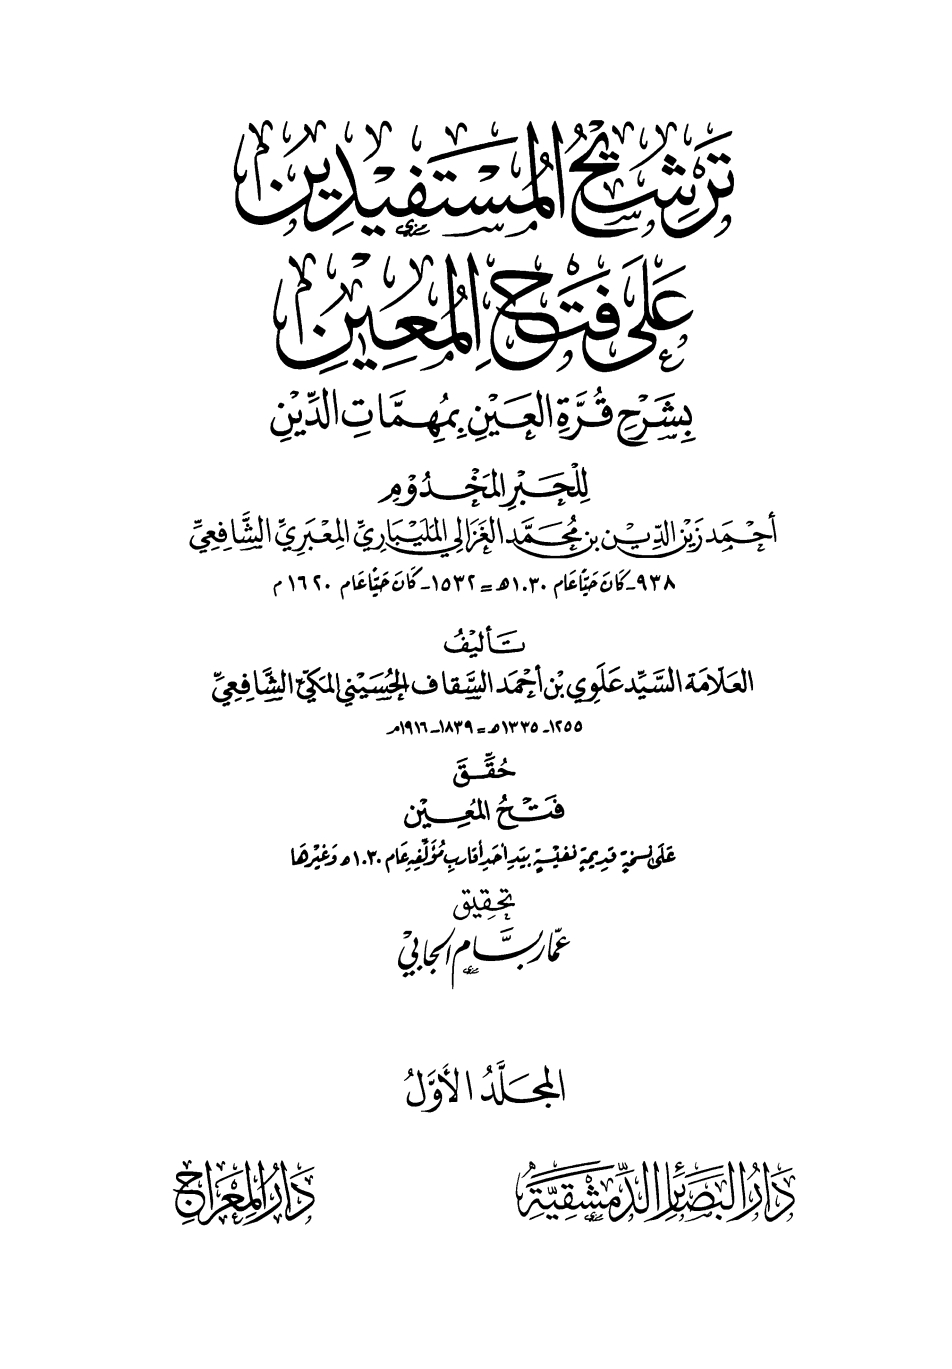 تَرْشِيحُ الْمُسْتَفِيدِينَ
عَلَى فَتْحِ الْمُعِينِ
بِشَرْحِ قُرَّةِ العَيْنِ بِمُهِمَّاتِ الدِّيْنِ
لِلْحَبْرِ المَخْدُوْمِ
أَحْمَد زَيْن الدِّيْن بن مُحَمَّد الغَزَالِي المَلَيْبَارِيِّ المِعْبَرِيِّ الشَّافِعِيِّ
٩٣٨ـ كَانَ حَيًّا عَام ١٠٣٠هـ = ١٥٣٢ـ كَانَ حَيًّا عَام ١٦٢٠م
تَأليْفُ
العَلَامَة السَّيِّد عَلَوِي بْن أَحْمَد السَّقاف الحُسَيْنِي المَكِّيّ الشَّافِعِيِّ
١٢٥٥ـ ١٣٣٥هـ = ١٨٣٩ـ ١٩١٦م
حُقِّقَ
فَتْحُ المُعِيْن
عَلَى نسخةٍ قديمةٍ نفيْسةٍ بيَدِ أحَدِ أقاربِ مُؤَلِّفِهِ عَام ١٠٣٠هـ وَغيْرِهَا
تحقِيق
عمّار بسَّام الجابي
المجَلَّدُ الأَوَّلُ
دَارُ الْبَصَائِرِ الدِّمَشْقِيَّةِ
دَارُ الْمِعْرَاجِ